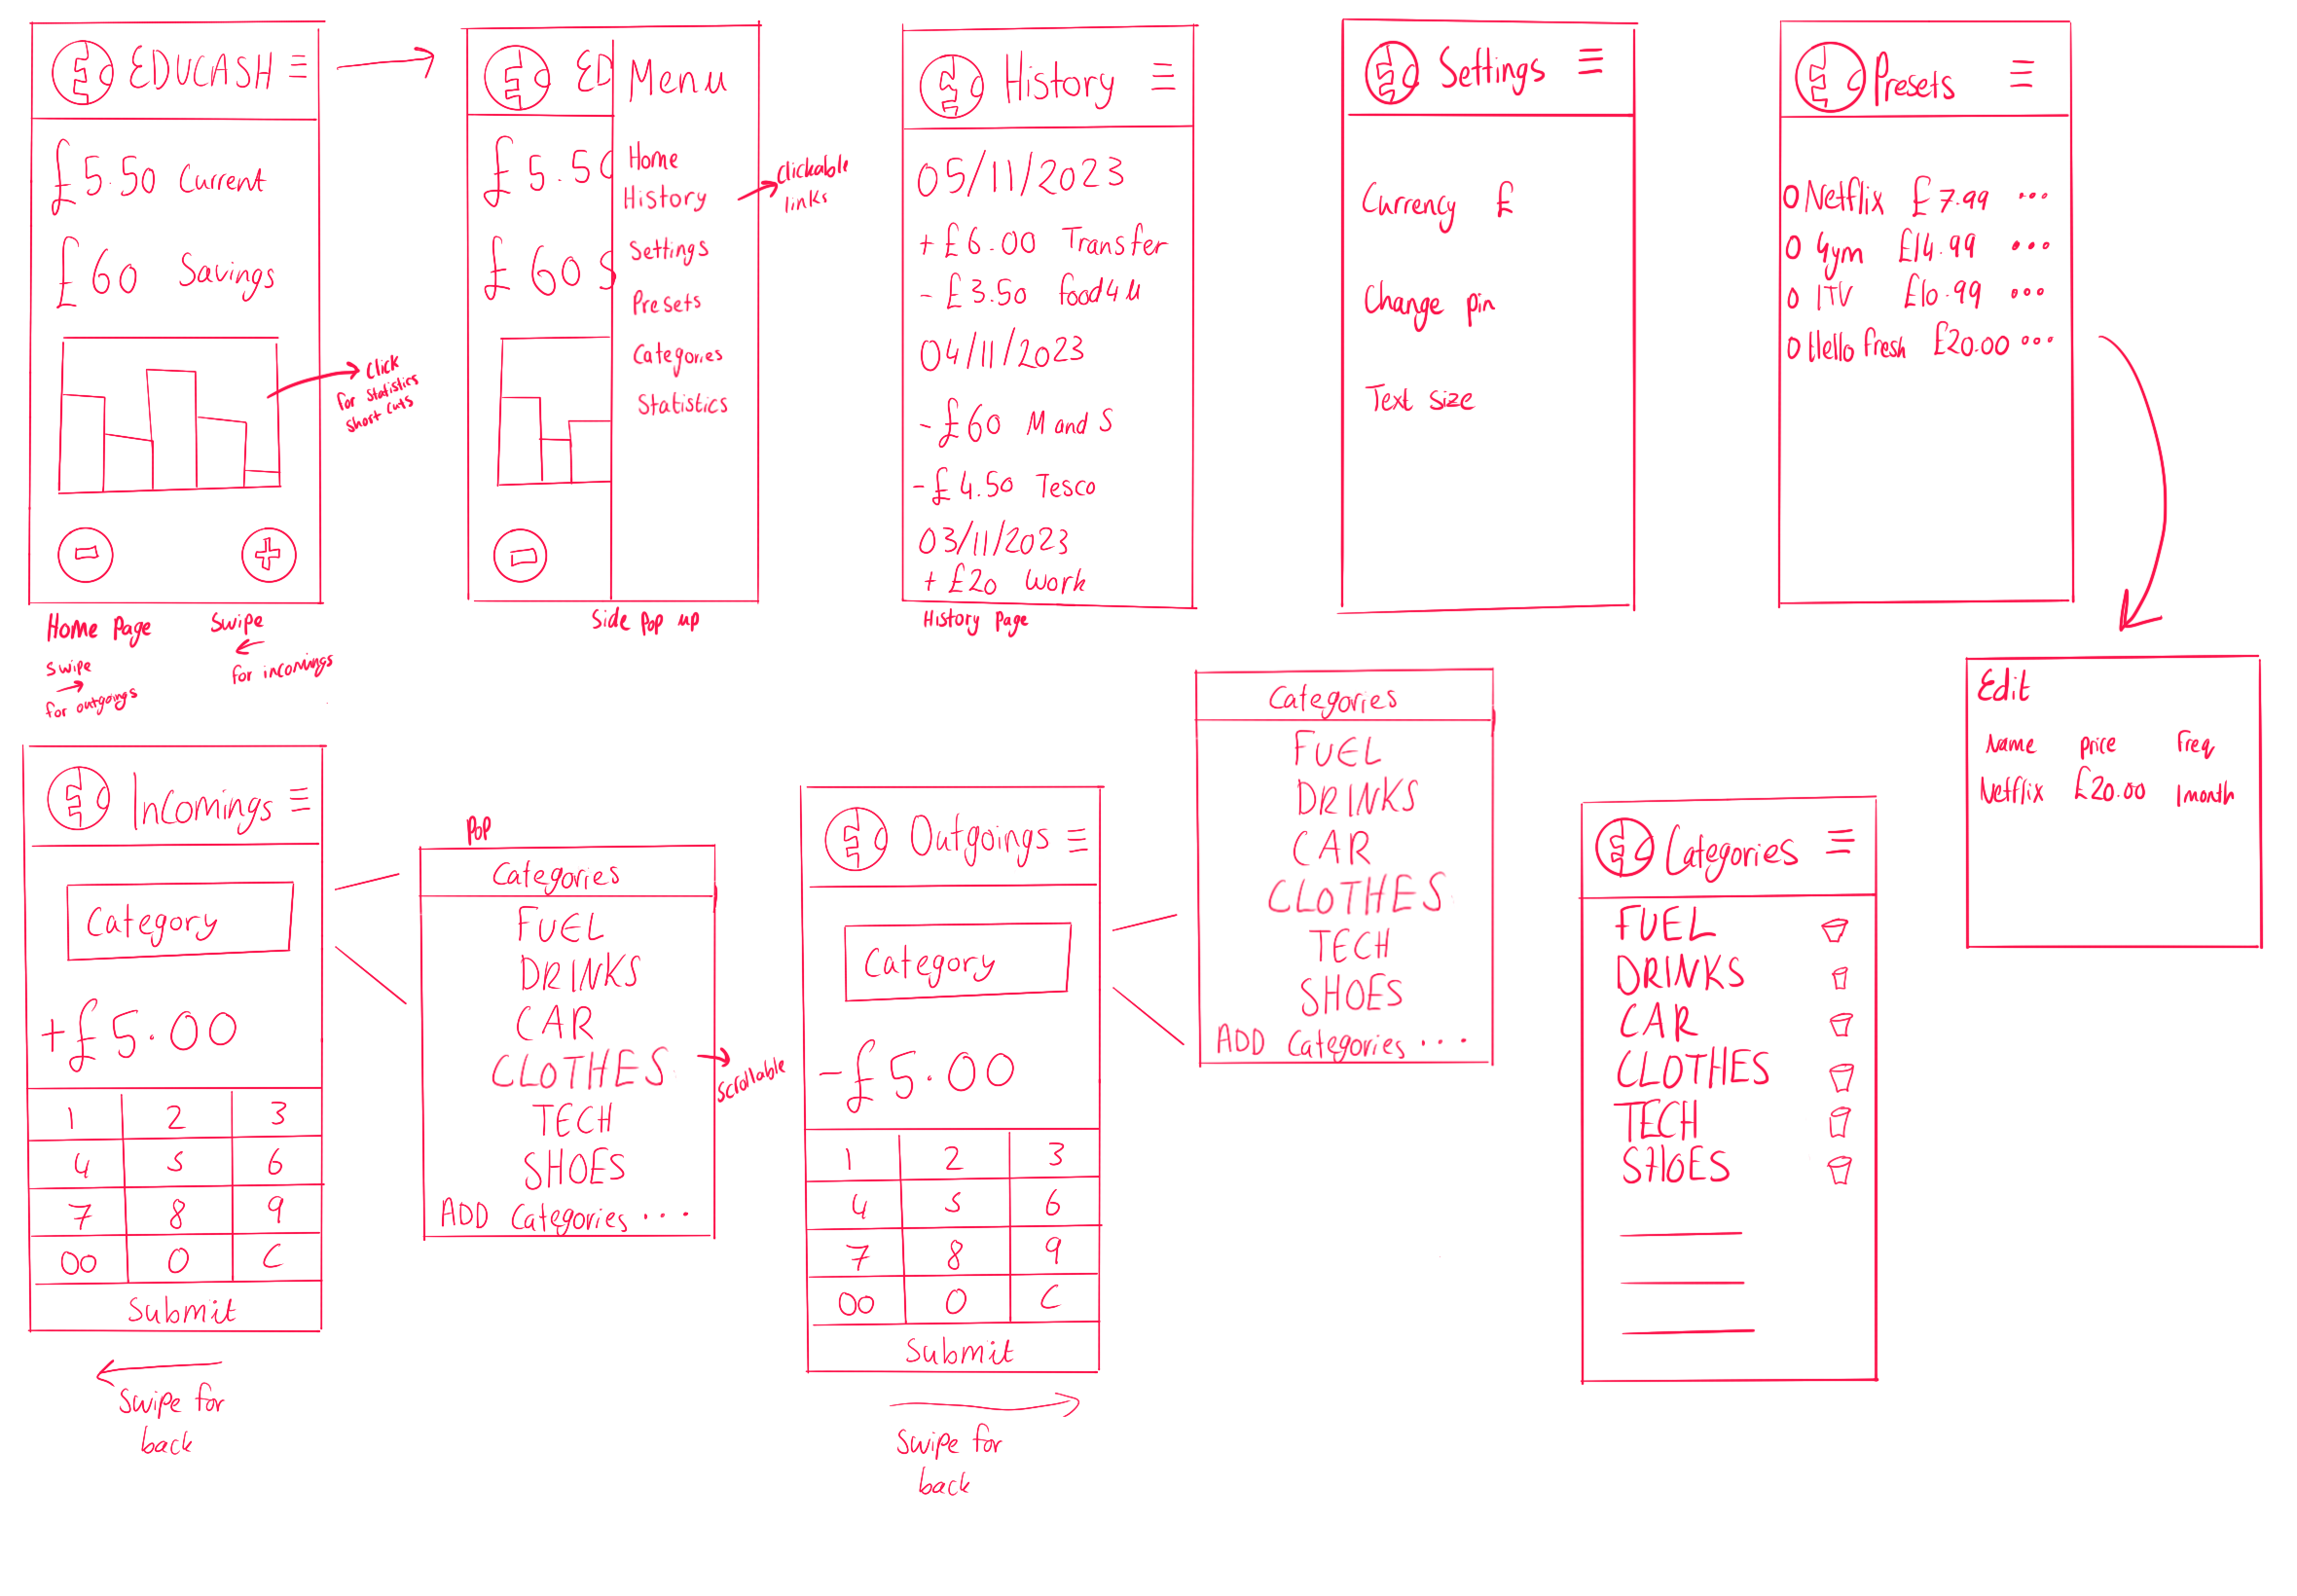 EDUCASH
£5.50 Current
£60 Savings
Click
for Statistics
Short cuts
Home Page
Swipe
for outgoings
Swipe
for incomings
ED
Menu
£5.50
£60 S
Home
History
Settings
Presets
Categories
Statistics
Clickable
links
Side Pop up
History
05/11/2023
+ £6.00 Transfer
- £3.50 food4u
04/11/2023
- £60 M and S
- £4.50 Tesco
03/11/2023
+ £20 Work
History Page
Settings
Currency £
Change pin
Text size
Presets
Netflix £7.99 ...
Gym £14.99 ...
ITV £10.99 ...
Hello fresh £20.00 ...
Edit
Name Price Freq
Netflix £20.00 1month
Incomings
Category
+£5.00
1 2 3
4 5 6
7 8 9
00 0 C
Submit
Swipe for
back
POP
Categories
FUEL
DRINKS
CAR
CLOTHES
TECH
SHOES
ADD Categories ...
Scrollable
Outgoings
Category
-£5.00
1 2 3
4 5 6
7 8 9
00 0 C
Submit
Swipe for
back
Categories
FUEL
DRINKS
CAR
CLOTHES
TECH
SHOES
ADD Categories ...
Categories
FUEL
DRINKS
CAR
CLOTHES
TECH
SHOES